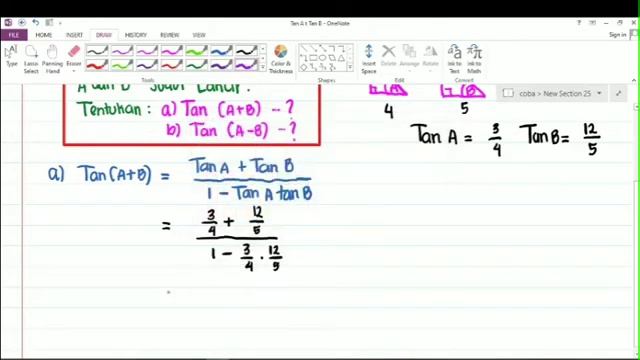 Tan A ± Tan B - OneNote
Sign in
FILE HOME INSERT DRAW HISTORY REVIEW VIEW
Type Lasso Select Panning Hand Eraser
Color & Thickness
Shapes
Insert Space Delete Arrange Rotate
Ink to Text Ink to Math
Tools Shapes Edit Convert
coba » New Section 25
A dan B Sudut Lancip.
Tentukan : a) Tan (A+B) = ?
b) Tan (A-B) = ?
4 5
Tan A = 3/4 Tan B = 12/5
a) Tan (A+B) = (Tan A + Tan B)/(1 - Tan A tan B)
= (3/4 + 12/5)/(1 - 3/4 . 12/5)